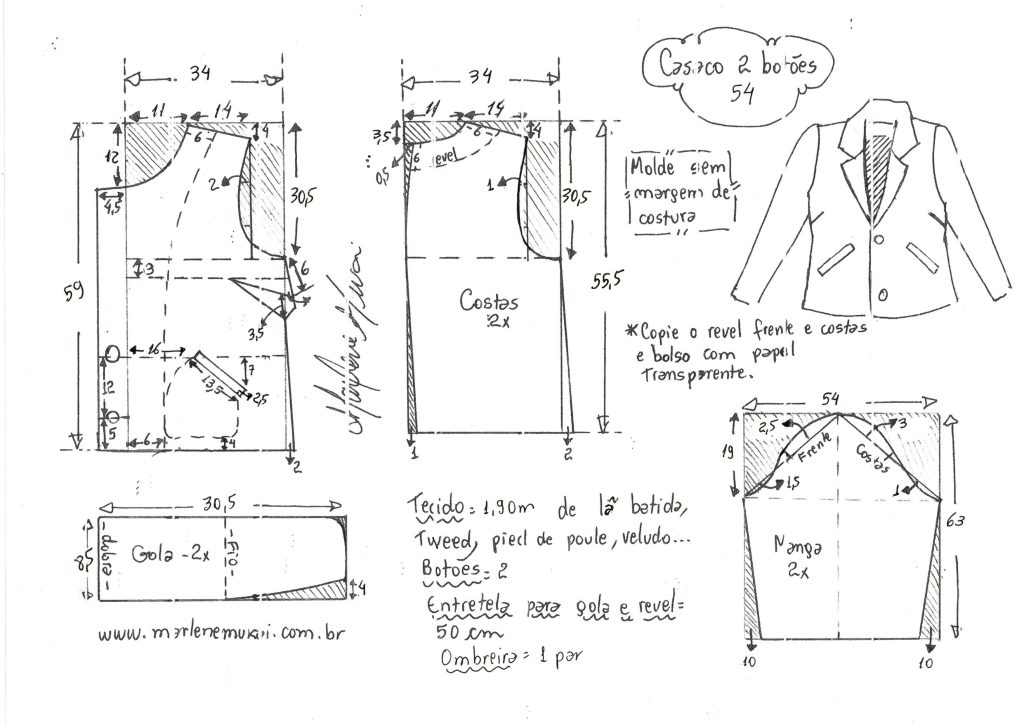 34
11
14
4
6
12
2
30,5
4,5
59
3
6
3,5
16
7
13,5
2,5
12
5
6
4
2
34
11
14
3,5
6
4
0,5
6
revel
1
30,5
55,5
Costas
2x
1
2
Casaco 2 botões
54
Molde sem
margem de
costura
*Copie o revel frente e costas
e bolso com papel
transparente.
54
2,5
3
19
Frente
Costas
1,5
1
63
Manga
2x
10
10
30,5
8,5
dobra
Gola - 2x
Fio
4
www.marlenemukai.com.br
Tecido = 1,90m de lã batida,
Tweed, pied de poule, veludo...
Botões = 2
Entretela para gola e revel =
50 cm
Ombreira = 1 par